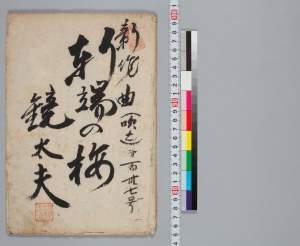 新作曲(噺古)第百廿七号
軒端の梅
鏡太夫